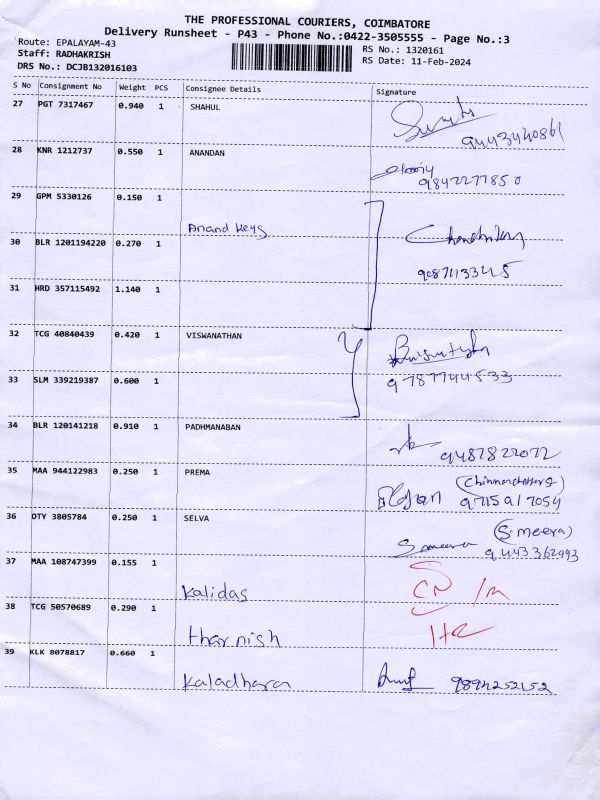 THE PROFESSIONAL COURIERS, COIMBATORE
Delivery Runsheet - P43 - Phone No.:0422-3505555 - Page No.:3
Route: EPALAYAM-43
RS No.: 1320161
Staff: RADHAKRISH
RS Date: 11-Feb-2024
DRS No.: DCJB132016103
S No Consignment No Weight PCS Consignee Details Signature
27 PGT 7317467 0.940 1 SHAHUL
28 KNR 1212737 0.550 1 ANANDAN
9842277850
29 GPM 5330126 0.150 1
Anand Keys
30 BLR 1201194220 0.270 1
9087413345
31 HRD 357115492 1.140 1
32 TCG 40840439 0.420 1 VISWANATHAN
33 SLM 339219387 0.600 1
9787744533
34 BLR 120141218 0.910 1 PADHMANABAN
9487822072
35 MAA 944122983 0.250 1 PREMA
9715917054
36 OTY 3805784 0.250 1 SELVA
(S.meera)
S meera 9443362993
37 MAA 108747399 0.155 1
Kalidas
38 TCG 50570689 0.290 1
tharnish
39 KLK 8078817 0.660 1
Kaladhara 9894252152